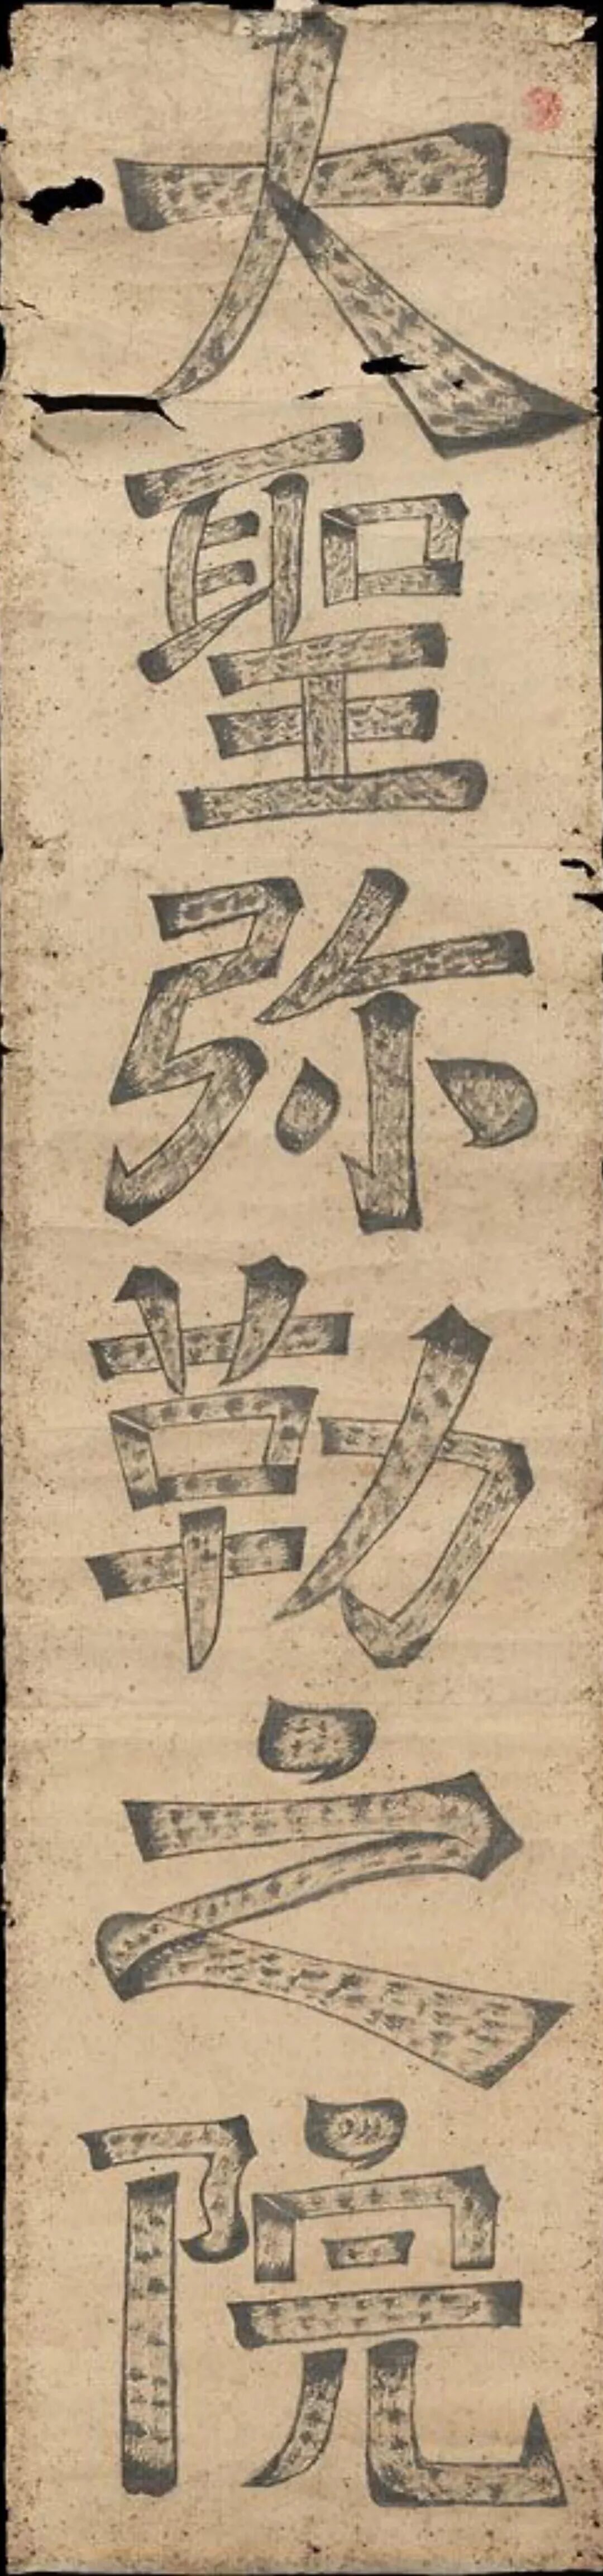 大聖弥勒之院